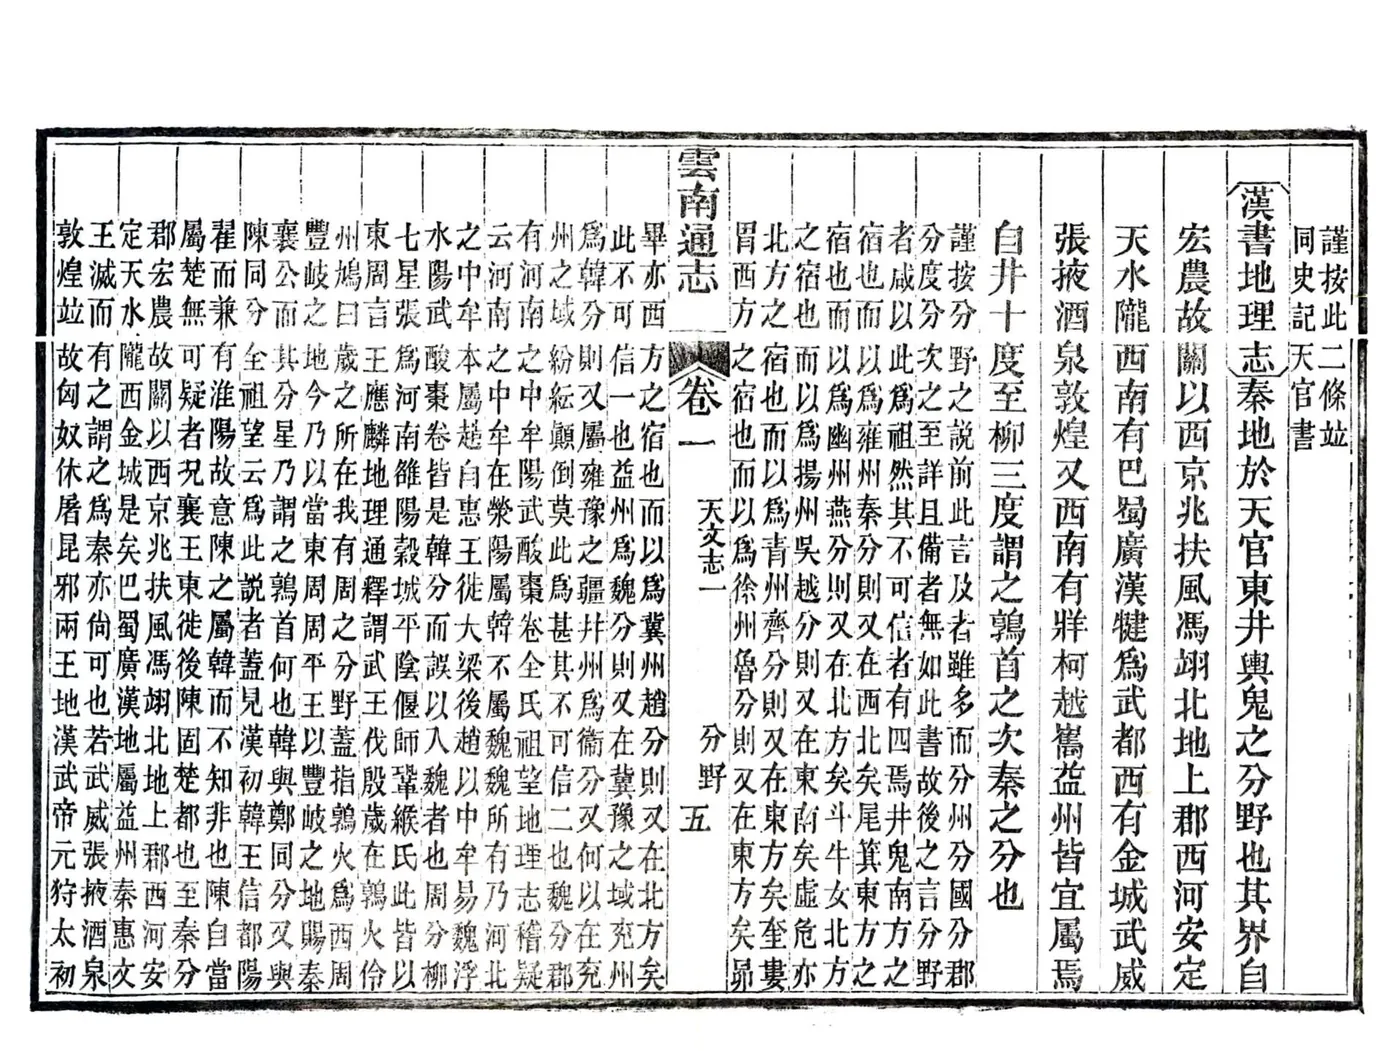 謹按此二條竝
同史記天官書
漢書地理志秦地於天官東井輿鬼之分野也其界自
宏農故關以西京兆扶風馮翊北地上郡西河安定
天水隴西南有巴蜀廣漢犍爲武都西有金城武威
張掖酒泉敦煌又西南有牂柯越嶲益州皆宜屬焉
自井十度至柳三度謂之鶉首之次秦之分也
謹按分野之說前此言及者雖多而分州分國分郡
分度分次之至詳且備者無如此書故後之言分野
者咸以此爲祖然其不可信者有四焉井鬼南方之
宿也而以爲雍州秦分則又在西北矣尾箕東方之
宿也而以爲幽州燕分則又在北方矣斗牛女北方
之宿也而以爲揚州吳越分則又在東南矣虛危亦
北方之宿也而以爲青州齊分則又在東方矣奎婁
胃西方之宿也而以爲徐州魯分則又在東方矣昴
雲南通志 卷一 天文志一 分野 五
畢亦西方之宿也而以爲冀州趙分則又在北方矣
此不可信一也益州爲魏分則又在冀豫之域兖州
爲韓分則又屬雍豫之疆井州爲衞分又何以在兖
州之域紛紜顚倒莫此爲甚其不可信二也魏分郡
有河南之中牟陽武酸棗卷全氏祖望地理志稽疑
云河南之中牟在滎陽屬韓不屬魏魏所有乃河北
之中牟本屬趙自惠王徙大梁後趙以中牟易魏浮
水陽武酸棗卷皆是韓分而誤以入魏者也周分柳
七星張爲河南雒陽穀城平陰偃師鞏緱氏此皆以
東周言王應麟地理通釋謂武王伐殷歲在鶉火伶
州鳩曰歲之所在我有周之分野蓋指鶉火爲西周
豐岐之地今乃以當東周周平王以豐岐之地賜秦
襄公而其分星乃謂之鶉首何也韓與鄭同分又與
陳同分全祖望云爲此說者蓋見漢初韓王信都陽
翟而兼有淮陽故意陳之屬韓而不知非也陳自當
屬楚無可疑者況襄王東徙後陳固楚都也至秦分
郡宏農故關以西京兆扶風馮翊北地上郡西河安
定天水隴西金城是矣巴蜀廣漢地屬益州秦惠文
王滅而有之謂之爲秦亦尙可也若武威張掖酒泉
敦煌竝故匈奴休屠昆邪兩王地漢武帝元狩太初